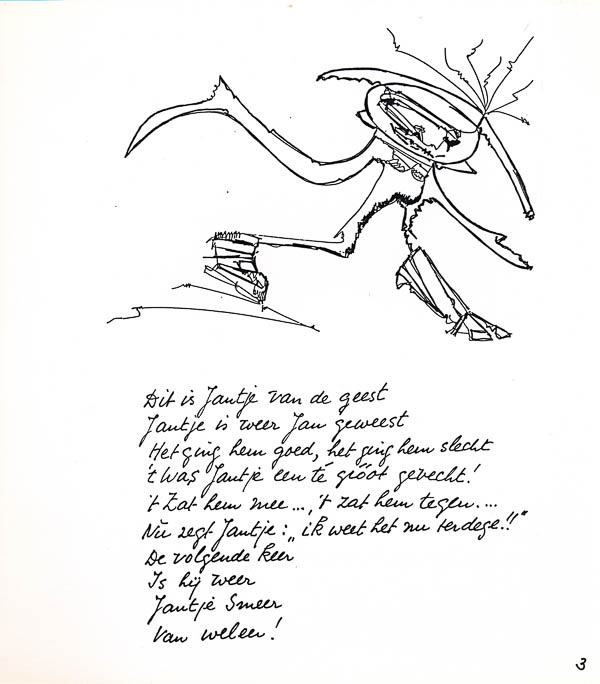 Dit is Jantje van de geest
Jantje is weer Jan geweest
Het ging hem goed, het ging hem slecht
't Was Jantje een té gróót gevecht!
't Zat hem mee..., 't zat hem tegen....
Nu zegt Jantje: „ik weet het nu terdege!!"
De volgende keer
Is hij weer
Jantje Smeer
Van weleer!
3